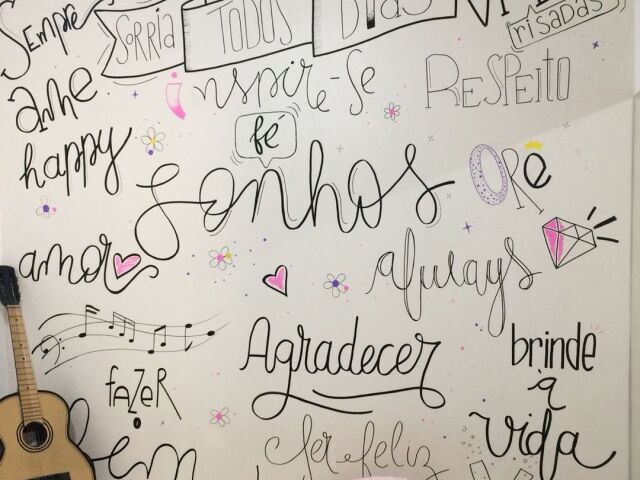 Sempre
SORRIA TODOS DIAS
risadas
Ame
inspire-se
RESPEITO
happy
fé
Sonhos
ORe
amor
always
Agradecer
brinde
à
vida
fAZeR
o
bem
Ser feliz